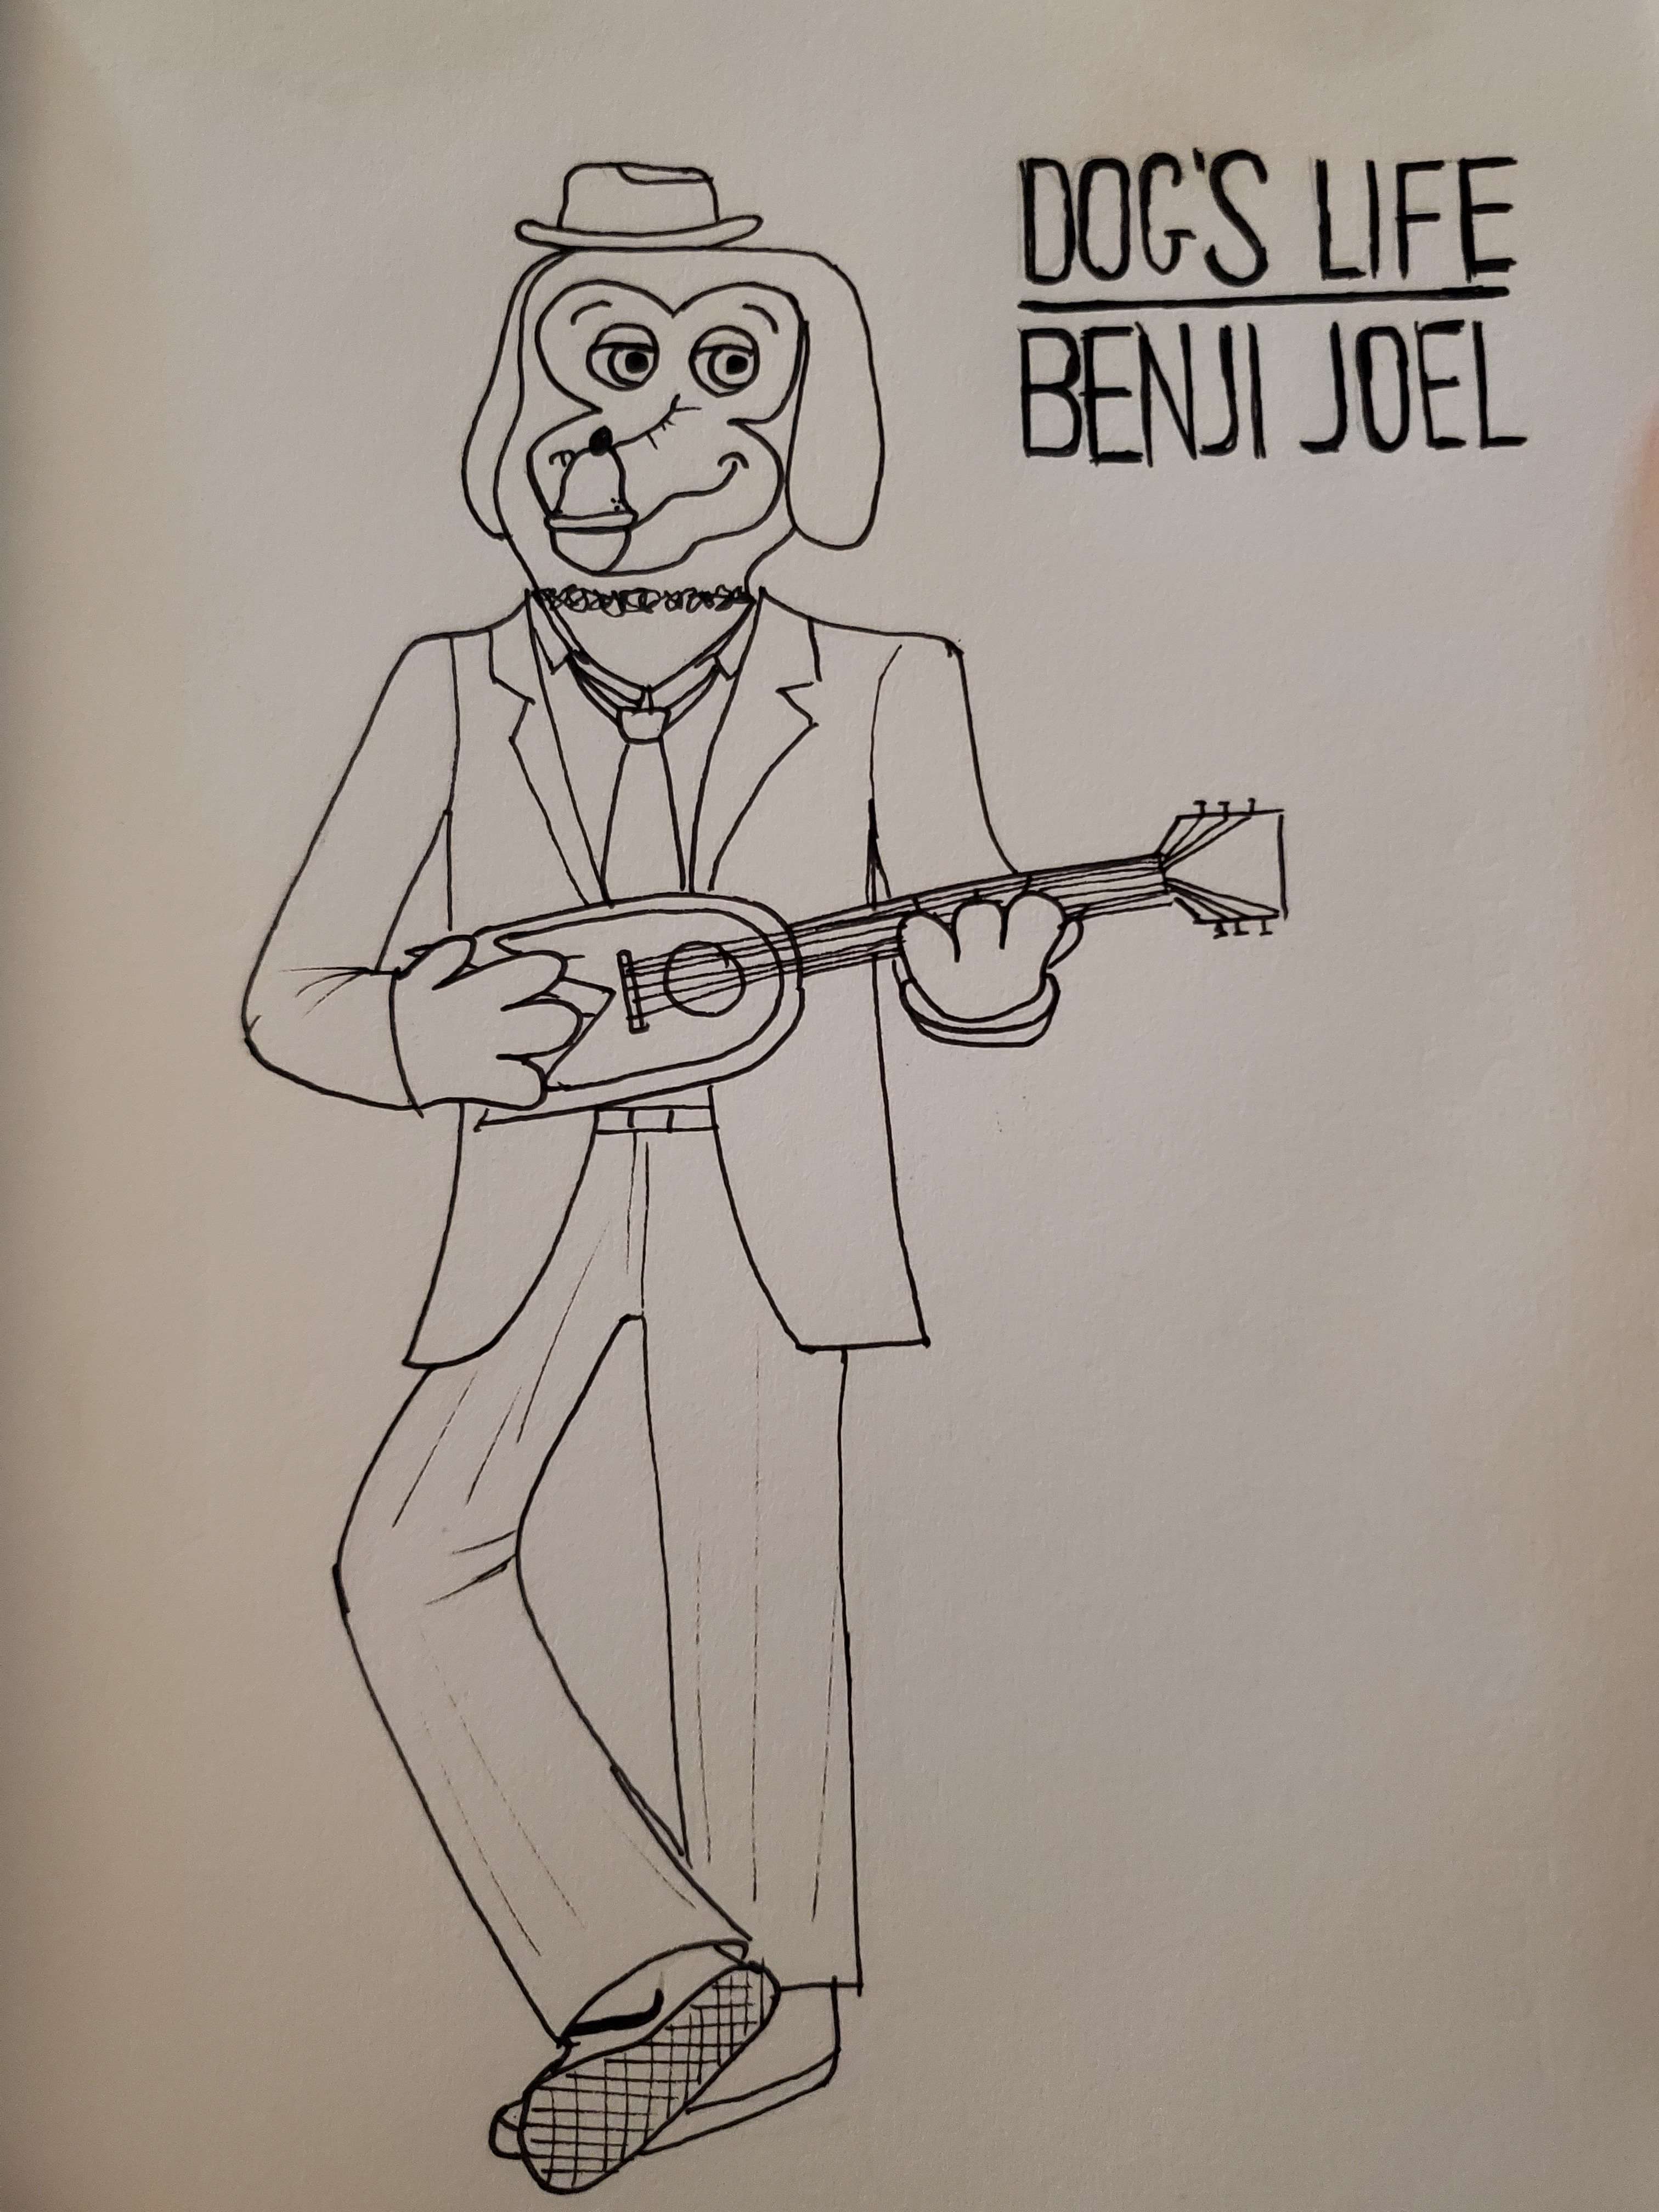 DOG'S LIFE
BENJI JOEL